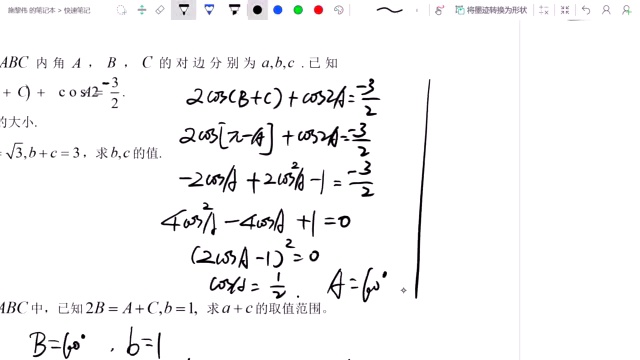 施黎伟 的笔记本 > 快速笔记
将墨迹转换为形状
ABC 内角 A ， B ， C 的对边分别为 a,b,c .已知
+ C) + cos2A = -3/2 .
的大小.
= √3,b+c=3，求b,c的值.
2cos(B+C) + cos2A = -3/2
2cos[π-A] + cos2A = -3/2
-2cosA + 2cos²A - 1 = -3/2
4cos²A - 4cosA + 1 = 0
(2cosA - 1)² = 0
cosA = 1/2 . A = 60°
ABC 中，已知 2B = A + C,b = 1, 求 a + c 的取值范围。
B = 60° , b = 1